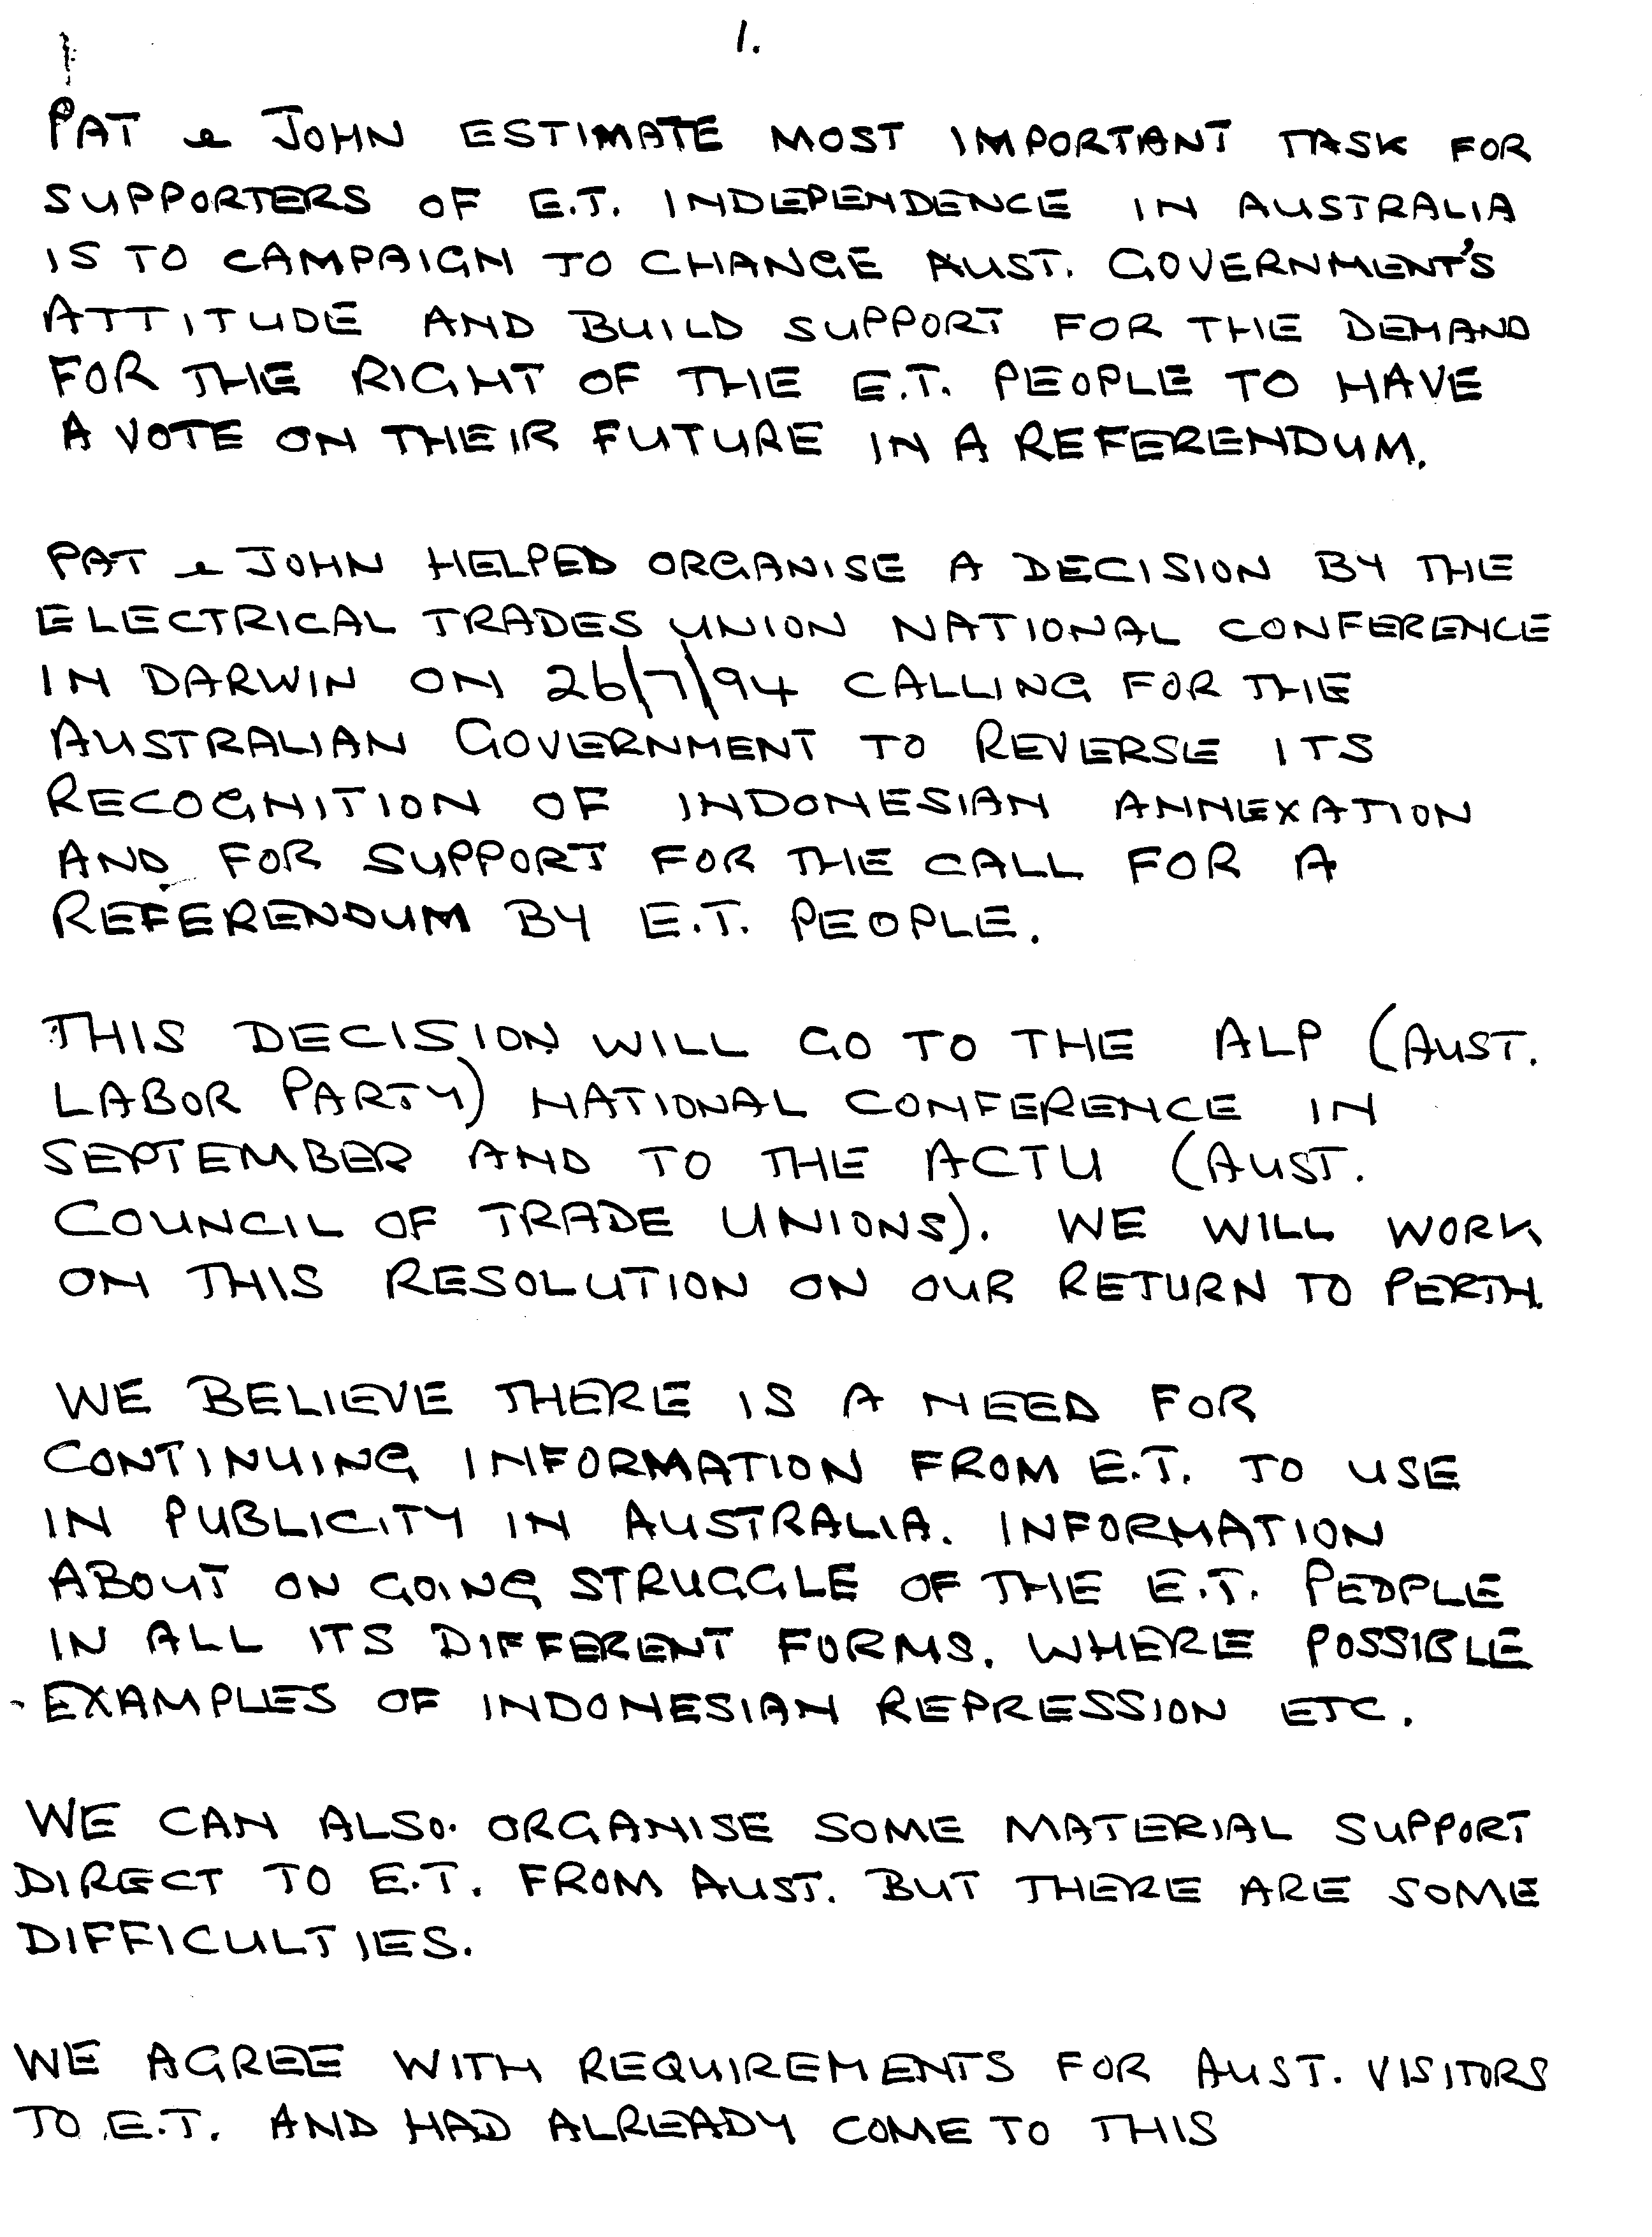 1.
PAT & JOHN ESTIMATE MOST IMPORTANT TASK FOR
SUPPORTERS OF E.T. INDEPENDENCE IN AUSTRALIA
IS TO CAMPAIGN TO CHANGE AUST. GOVERNMENT'S
ATTITUDE AND BUILD SUPPORT FOR THE DEMAND
FOR THE RIGHT OF THE E.T. PEOPLE TO HAVE
A VOTE ON THEIR FUTURE IN A REFERENDUM.
PAT & JOHN HELPED ORGANISE A DECISION BY THE
ELECTRICAL TRADES UNION NATIONAL CONFERENCE
IN DARWIN ON 26/7/94 CALLING FOR THE
AUSTRALIAN GOVERNMENT TO REVERSE ITS
RECOGNITION OF INDONESIAN ANNEXATION
AND FOR SUPPORT FOR THE CALL FOR A
REFERENDUM BY E.T. PEOPLE.
THIS DECISION WILL GO TO THE ALP (AUST.
LABOR PARTY) NATIONAL CONFERENCE IN
SEPTEMBER AND TO THE ACTU (AUST.
COUNCIL OF TRADE UNIONS). WE WILL WORK
ON THIS RESOLUTION ON OUR RETURN TO PERTH.
WE BELIEVE THERE IS A NEED FOR
CONTINUING INFORMATION FROM E.T. TO USE
IN PUBLICITY IN AUSTRALIA. INFORMATION
ABOUT ON GOING STRUGGLE OF THE E.T. PEOPLE
IN ALL ITS DIFFERENT FORMS. WHERE POSSIBLE
EXAMPLES OF INDONESIAN REPRESSION ETC.
WE CAN ALSO ORGANISE SOME MATERIAL SUPPORT
DIRECT TO E.T. FROM AUST. BUT THERE ARE SOME
DIFFICULTIES.
WE AGREE WITH REQUIREMENTS FOR AUST. VISITORS
TO E.T. AND HAD ALREADY COME TO THIS